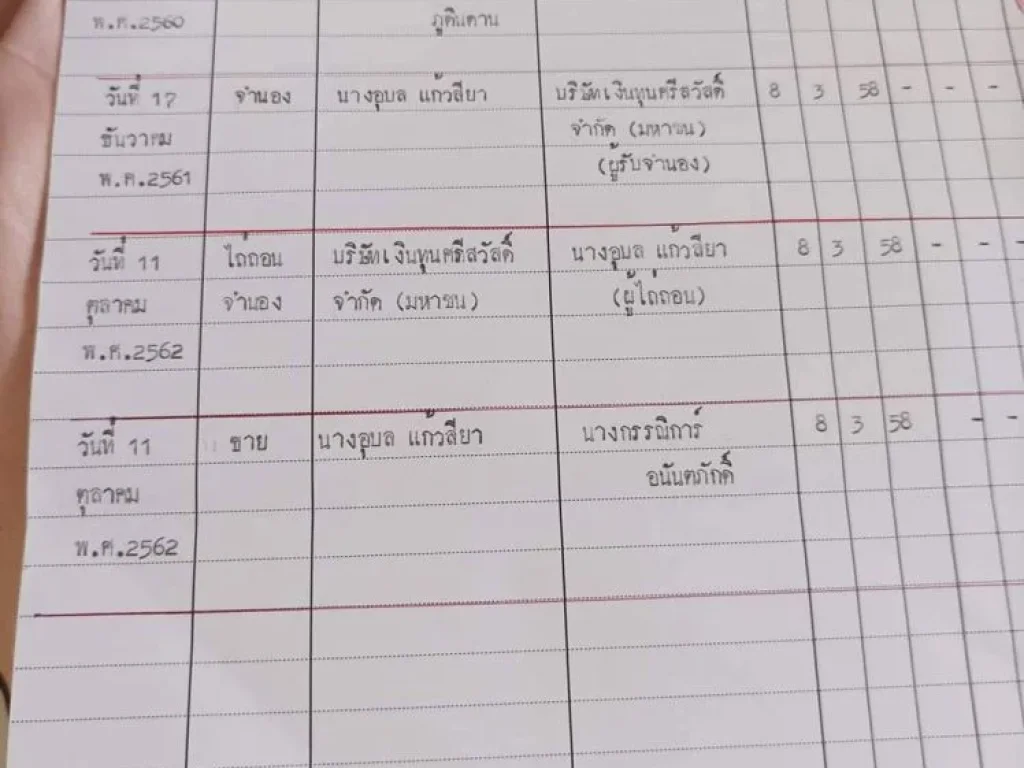 พ.ศ.2560 ภูดินดาน
วันที่ 17 จำนอง นางอุบล แก้วสียา บริษัทเงินทุนศรีสวัสดิ์ 8 3 58 - - -
ธันวาคม จำกัด (มหาชน)
พ.ศ.2561 (ผู้รับจำนอง)
วันที่ 11 ไถ่ถอน บริษัทเงินทุนศรีสวัสดิ์ นางอุบล แก้วสียา 8 3 58 - - -
ตุลาคม จำนอง จำกัด (มหาชน) (ผู้ไถ่ถอน)
พ.ศ.2562
วันที่ 11 ขาย นางอุบล แก้วสียา นางกรรณิการ์ 8 3 58 - -
ตุลาคม อนันตภักดิ์
พ.ศ.2562